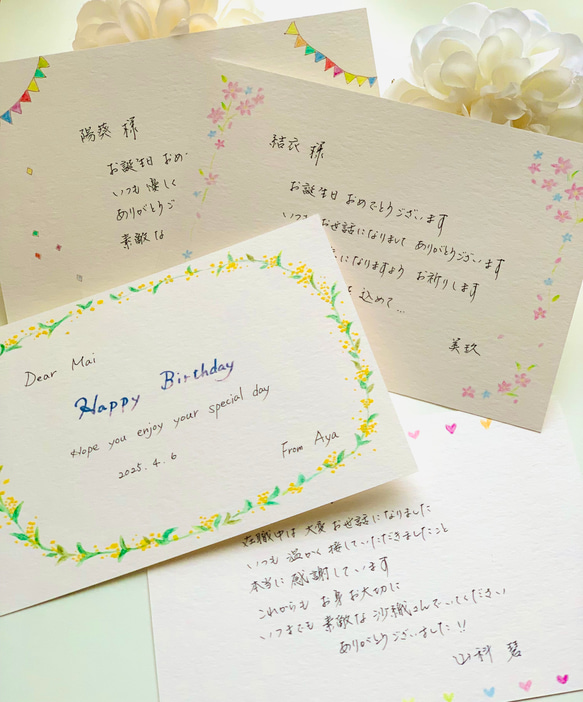 陽葵 様
お誕生日 おめ
いつも 優しく
ありがとうご
素敵な
結衣 様
お誕生日 おめでとうございます
いつも お世話になりまして ありがとうございます
になりますよう お祈りします
込めて…
美玖
Dear Mai
Happy Birthday
Hope you enjoy your special day
2025.4.6
From Aya
在職中は 大変 お世話になりました
いつも 温かく 接していただきましたこと
本当に 感謝しています
これからも お身お大切に
いつまでも 素敵な 沙織さんでいてください
ありがとうございました!!
山科 碧